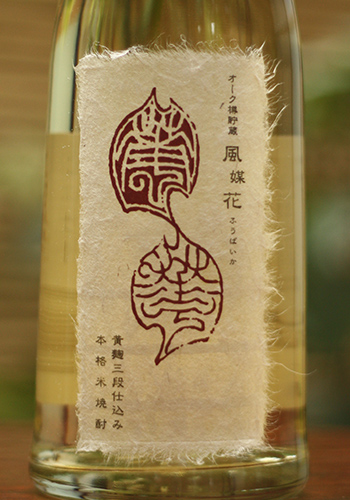 オーク樽貯蔵
風媒花
ふうばいか
黄麹三段仕込み
本格米焼酎